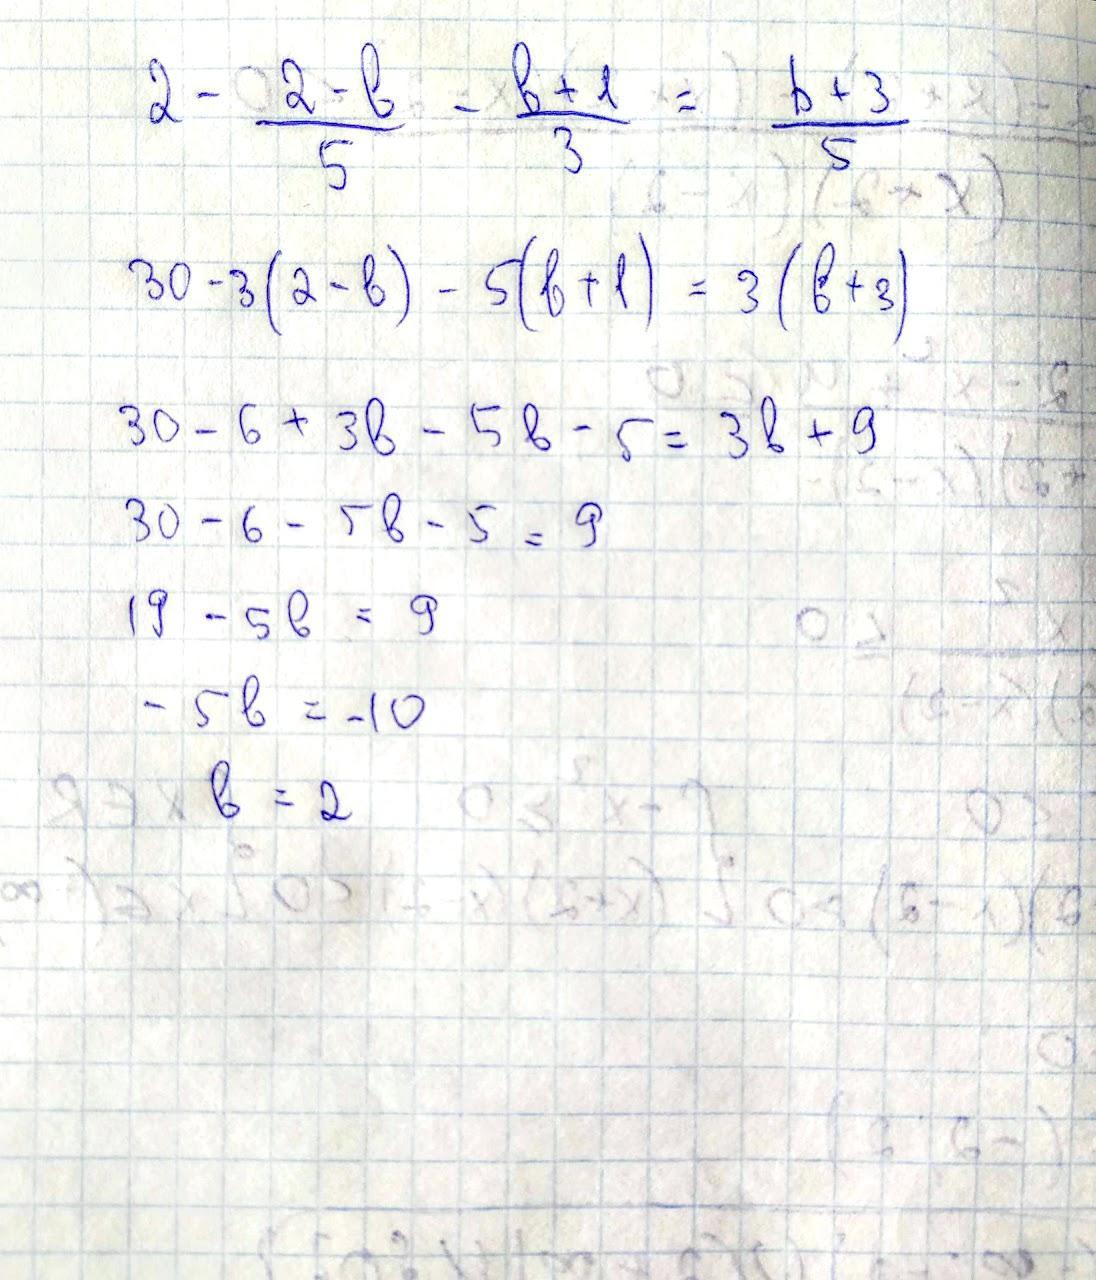 2 - \frac{2-b}{5} - \frac{b+1}{3} = \frac{b+3}{5}
30 - 3(2-b) - 5(b+1) = 3(b+3)
30 - 6 + 3b - 5b - 5 = 3b + 9
30 - 6 - 5b - 5 = 9
19 - 5b = 9
- 5b = -10
b = 2